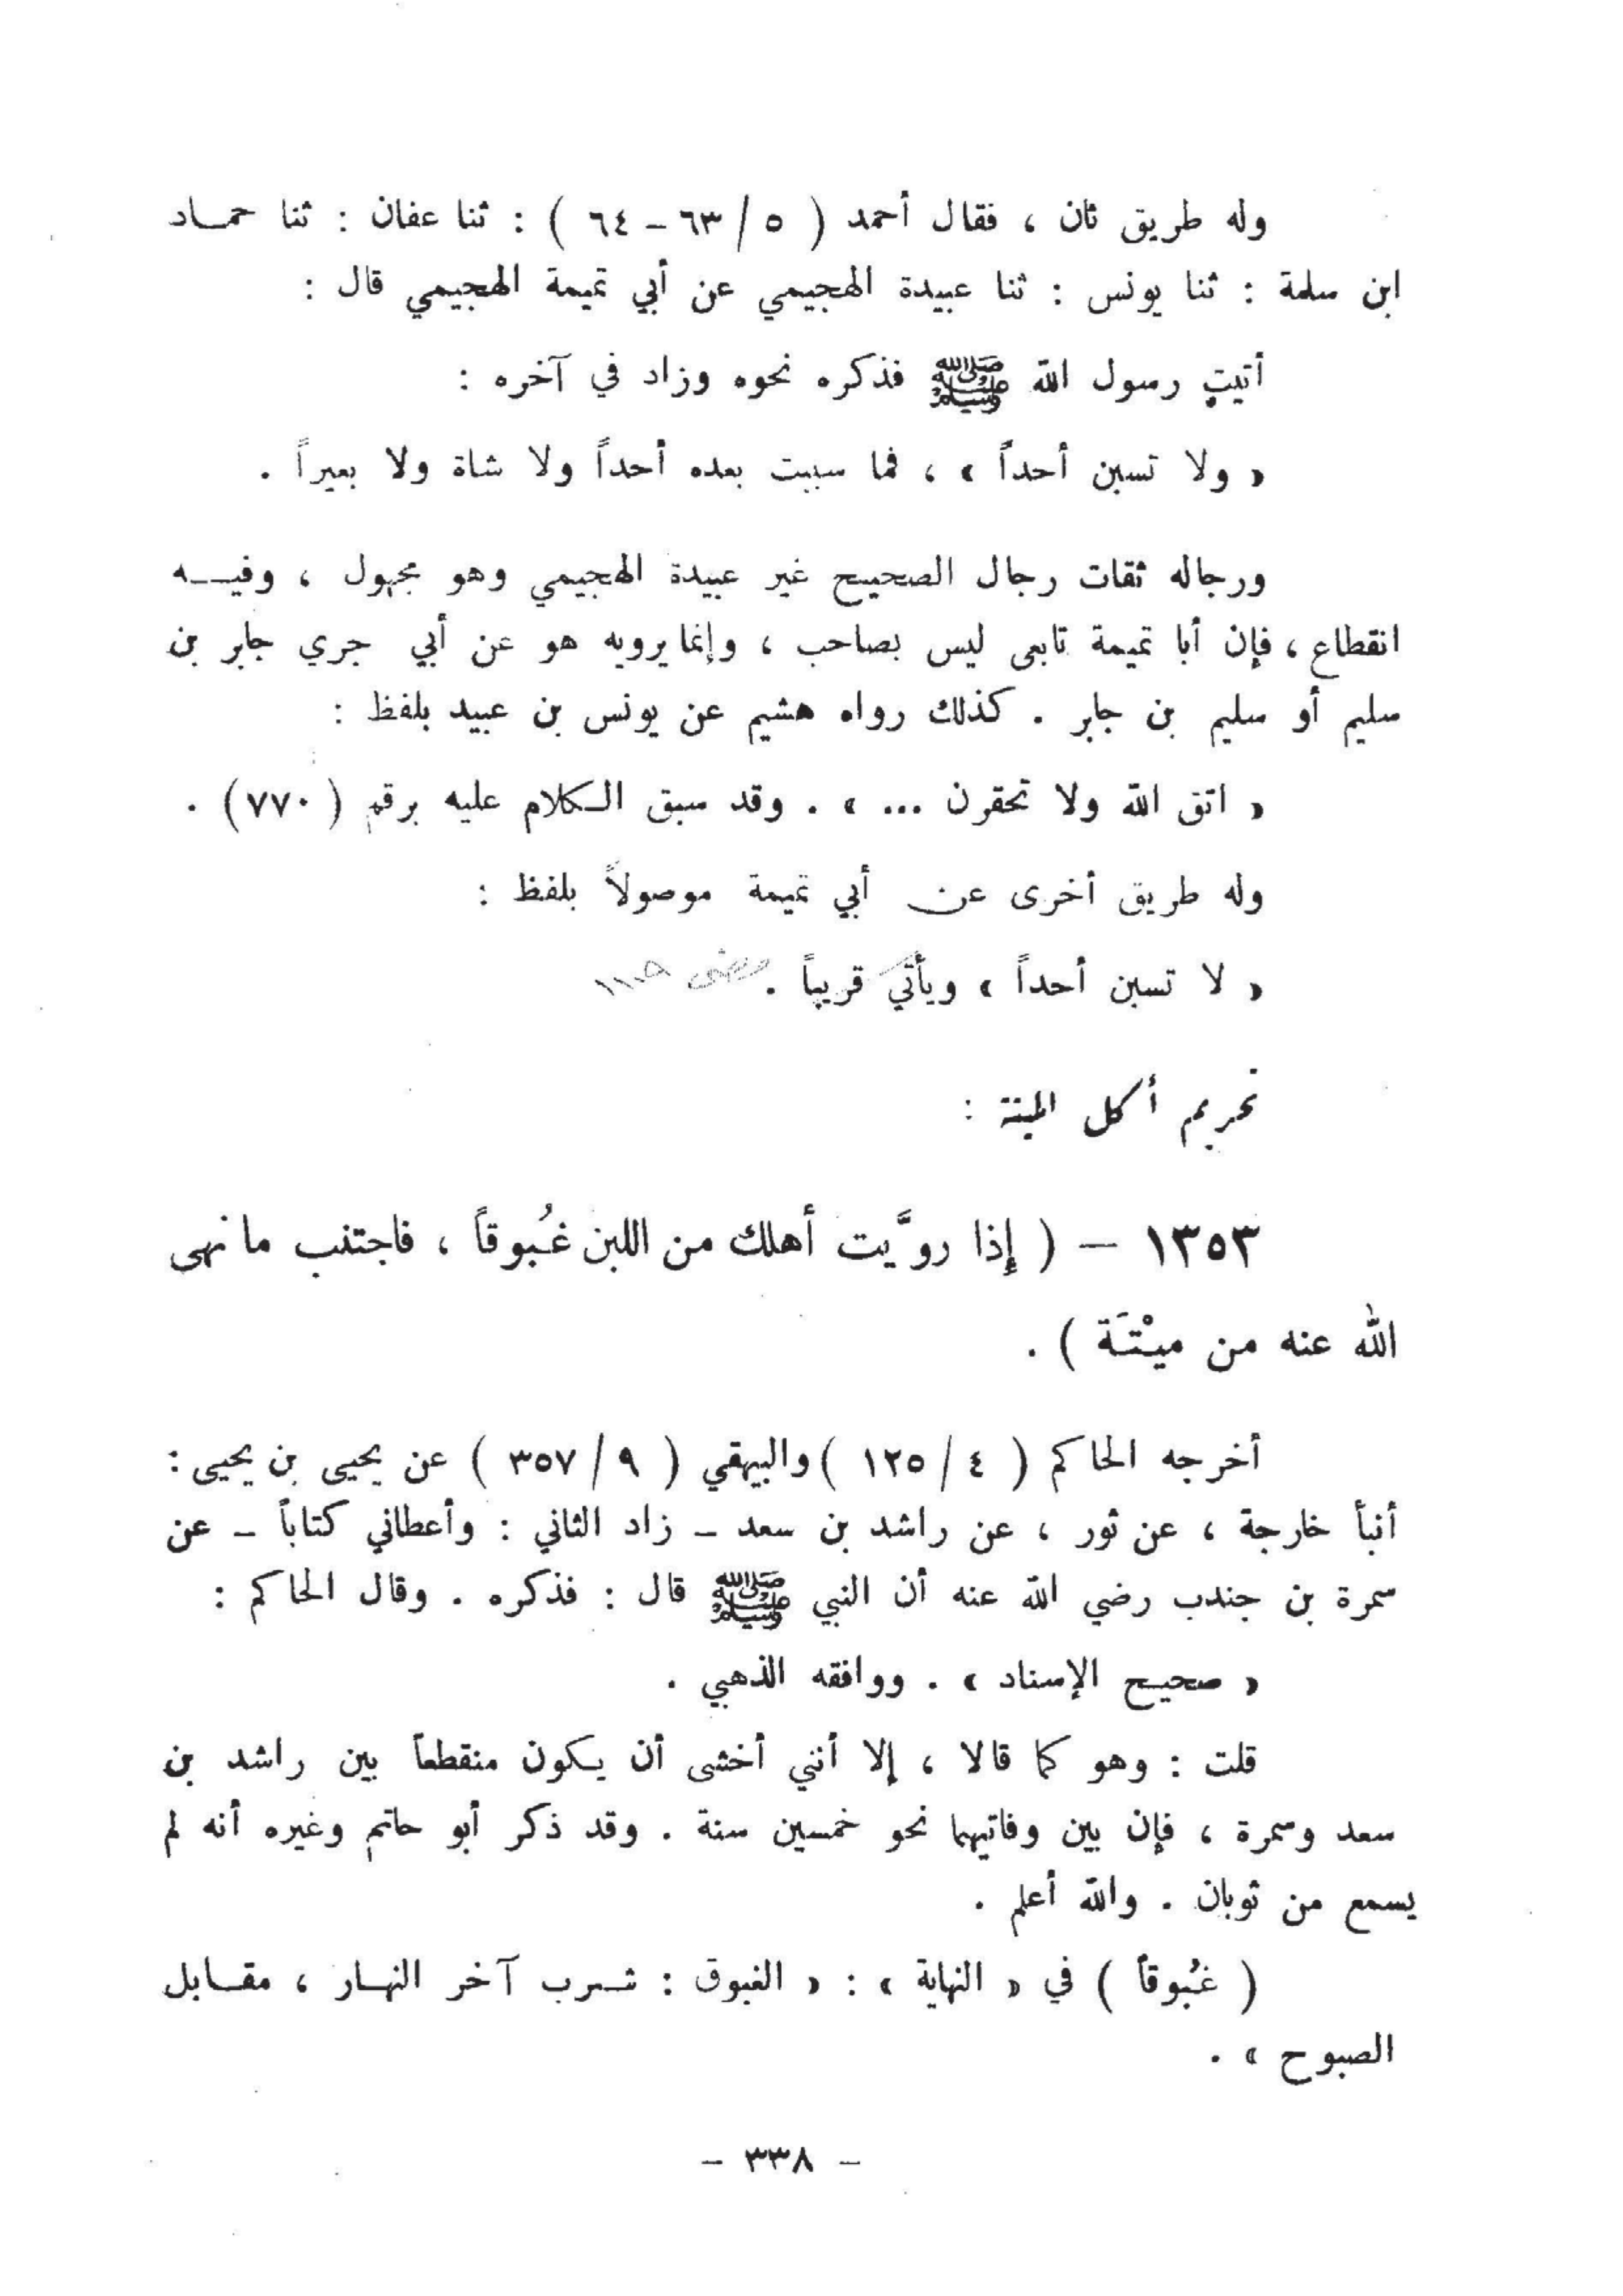 وله طريق ثان ، فقال أحمد ( ٥ / ٦٣ – ٦٤ ) : ثنا عفان : ثنا حمـاد
ابن سلمة : ثنا يونس : ثنا عبيدة الهجيمي عن أبي تميمة الهجيمي قال :
أتيت رسول الله ﷺ فذكره نحوه وزاد في آخره :
« ولا تسبن أحداً » ، فما سببت بعده أحداً ولا شاة ولا بعيراً .
ورجاله ثقات رجال الصحيح غير عبيدة الهجيمي وهو مجهول ، وفيـه
انقطاع ، فإن أبا تميمة تابعى ليس بصاحب ، وإنما يرويه هو عن أبي جري جابر بن
سليم أو سليم بن جابر . كذلك رواه هشيم عن يونس بن عبيد بلفظ :
« اتق الله ولا تحقرن ... » . وقد سبق الكلام عليه برقم ( ٧٧٠ ) .
وله طريق أخرى عن أبي تميمة موصولاً بلفظ :
« لا تسبن أحداً » ويأتي قريباً . مضى
تحريم أكل الميتة :
١٣٥٣ – ( إذا روَّيت أهلك من اللبن غُبوقاً ، فاجتنب ما نهى
الله عنه من ميْتَة ) .
أخرجه الحاكم ( ٤ / ١٢٥ ) والبيهقي ( ٩ / ٣٥٧ ) عن يحيى بن يحيى :
أنبأ خارجة ، عن ثور ، عن راشد بن سعد – زاد الثاني : وأعطاني كتاباً – عن
سمرة بن جندب رضي الله عنه أن النبي ﷺ قال : فذكره . وقال الحاكم :
« صحيح الإسناد » . ووافقه الذهبي .
قلت : وهو كما قالا ، إلا أنني أخشى أن يكون منقطعاً بين راشد بن
سعد وسمرة ، فإن بين وفاتيهما نحو خمسين سنة . وقد ذكر أبو حاتم وغيره أنه لم
يسمع من ثوبان . والله أعلم .
( غبُوقاً ) في « النهاية » : « الغبوق : شـرب آخر النهـار ، مقـابل
الصبوح » .
– ٣٣٨ –